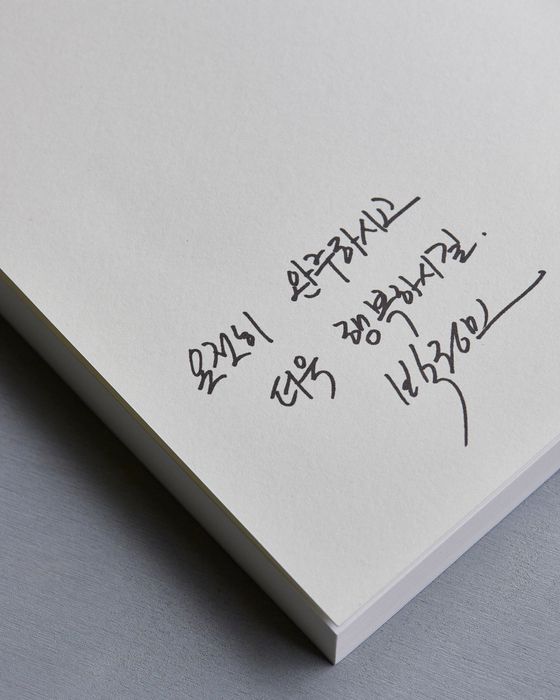 온전히 완주하시고
더욱 행복하시길.